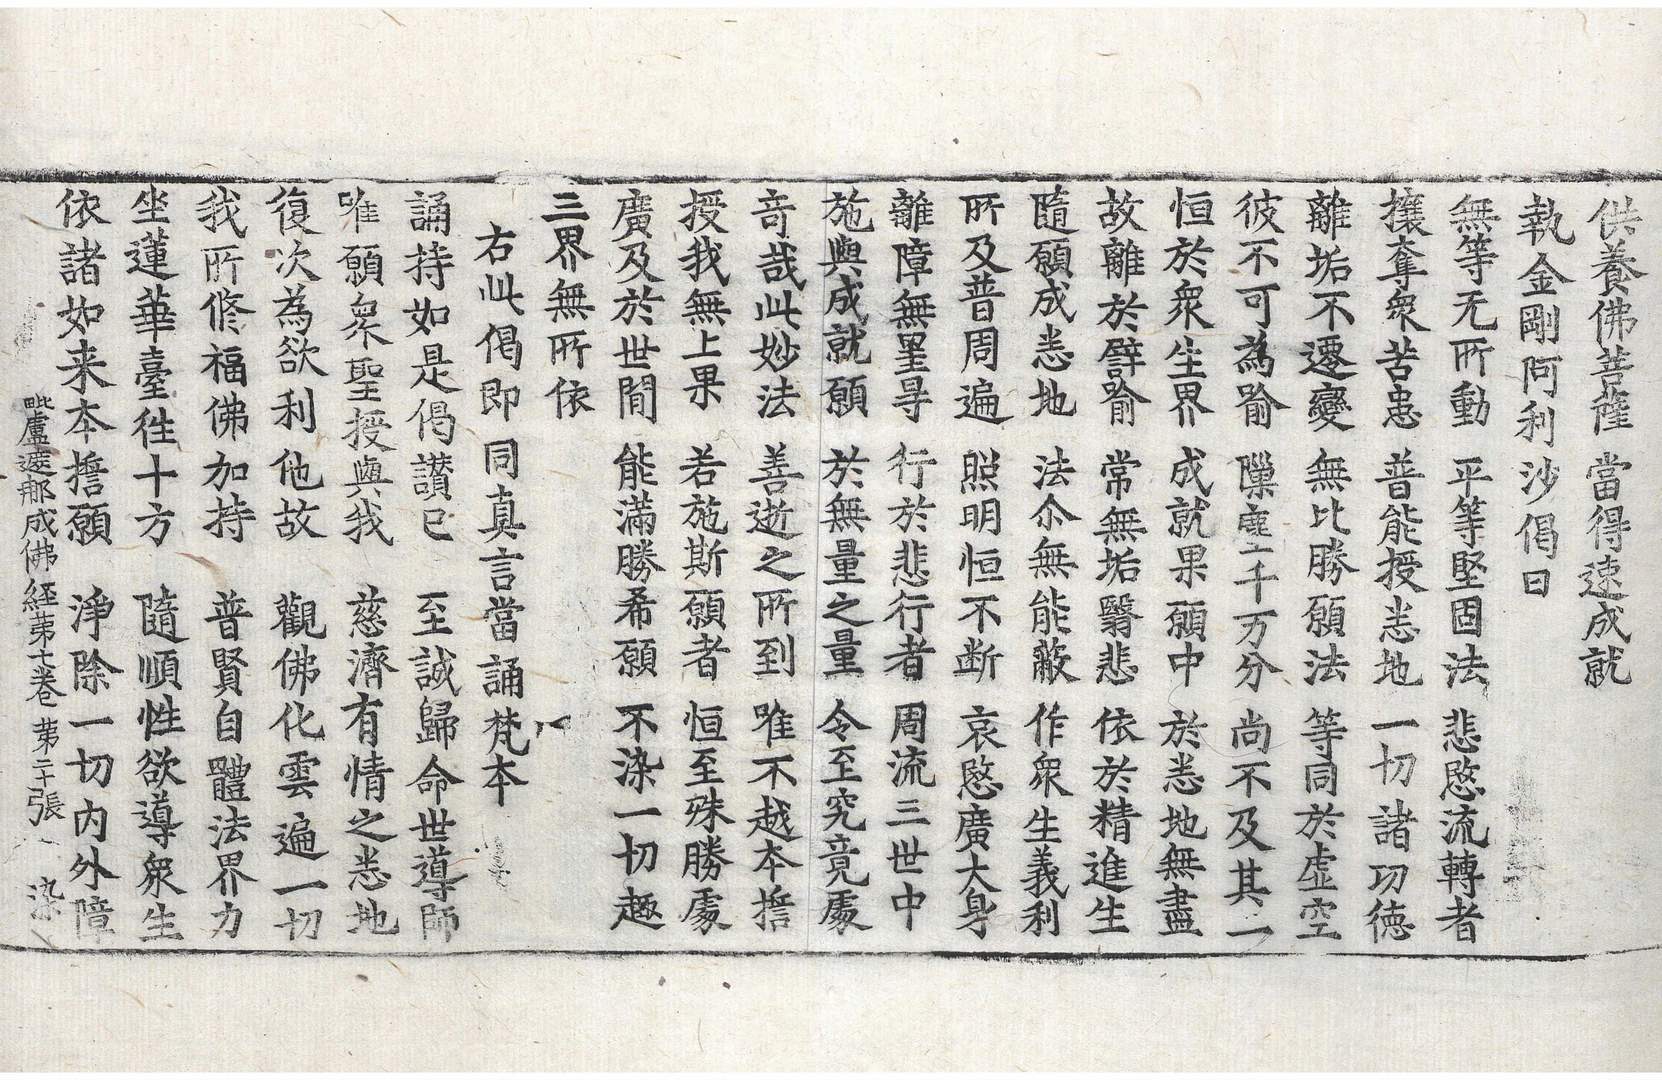 供養佛菩薩 當得速成就
執金剛阿利沙偈曰
無等无所動 平等堅固法 悲愍流轉者
攘奪衆苦患 普能授悉地 一切諸功德
離垢不遷變 無比勝願法 等同於虛空
彼不可為喻 隟塵千万分 尚不及其一
恒於衆生界 成就果願中 於悉地無盡
故離於譬喻 常無垢翳悲 依於精進生
隨願成悉地 法尒無能蔽 作衆生義利
所及普周遍 照明恒不断 哀愍廣大身
離障無罣㝵 行於悲行者 周流三世中
施與成就願 於無量之量 令至究竟處
竒哉此妙法 善逝之所到 唯不越本誓
授我無上果 若施斯願者 恒至殊勝處
廣及於世閒 能滿勝希願 不染一切趣
三界無所依
右此偈即同真言當誦梵本
誦持如是偈讃已 至誠歸命世導師
唯願衆聖授與我 慈濟有情之悉地
復次為欲利他故 觀佛化雲遍一切
我所修福佛加持 普賢自體法界力
坐蓮華臺徃十方 隨順性欲導衆生
依諸如来本誓願 淨除一切内外障
毗盧遮那成佛経苐七卷 苐二十張 染